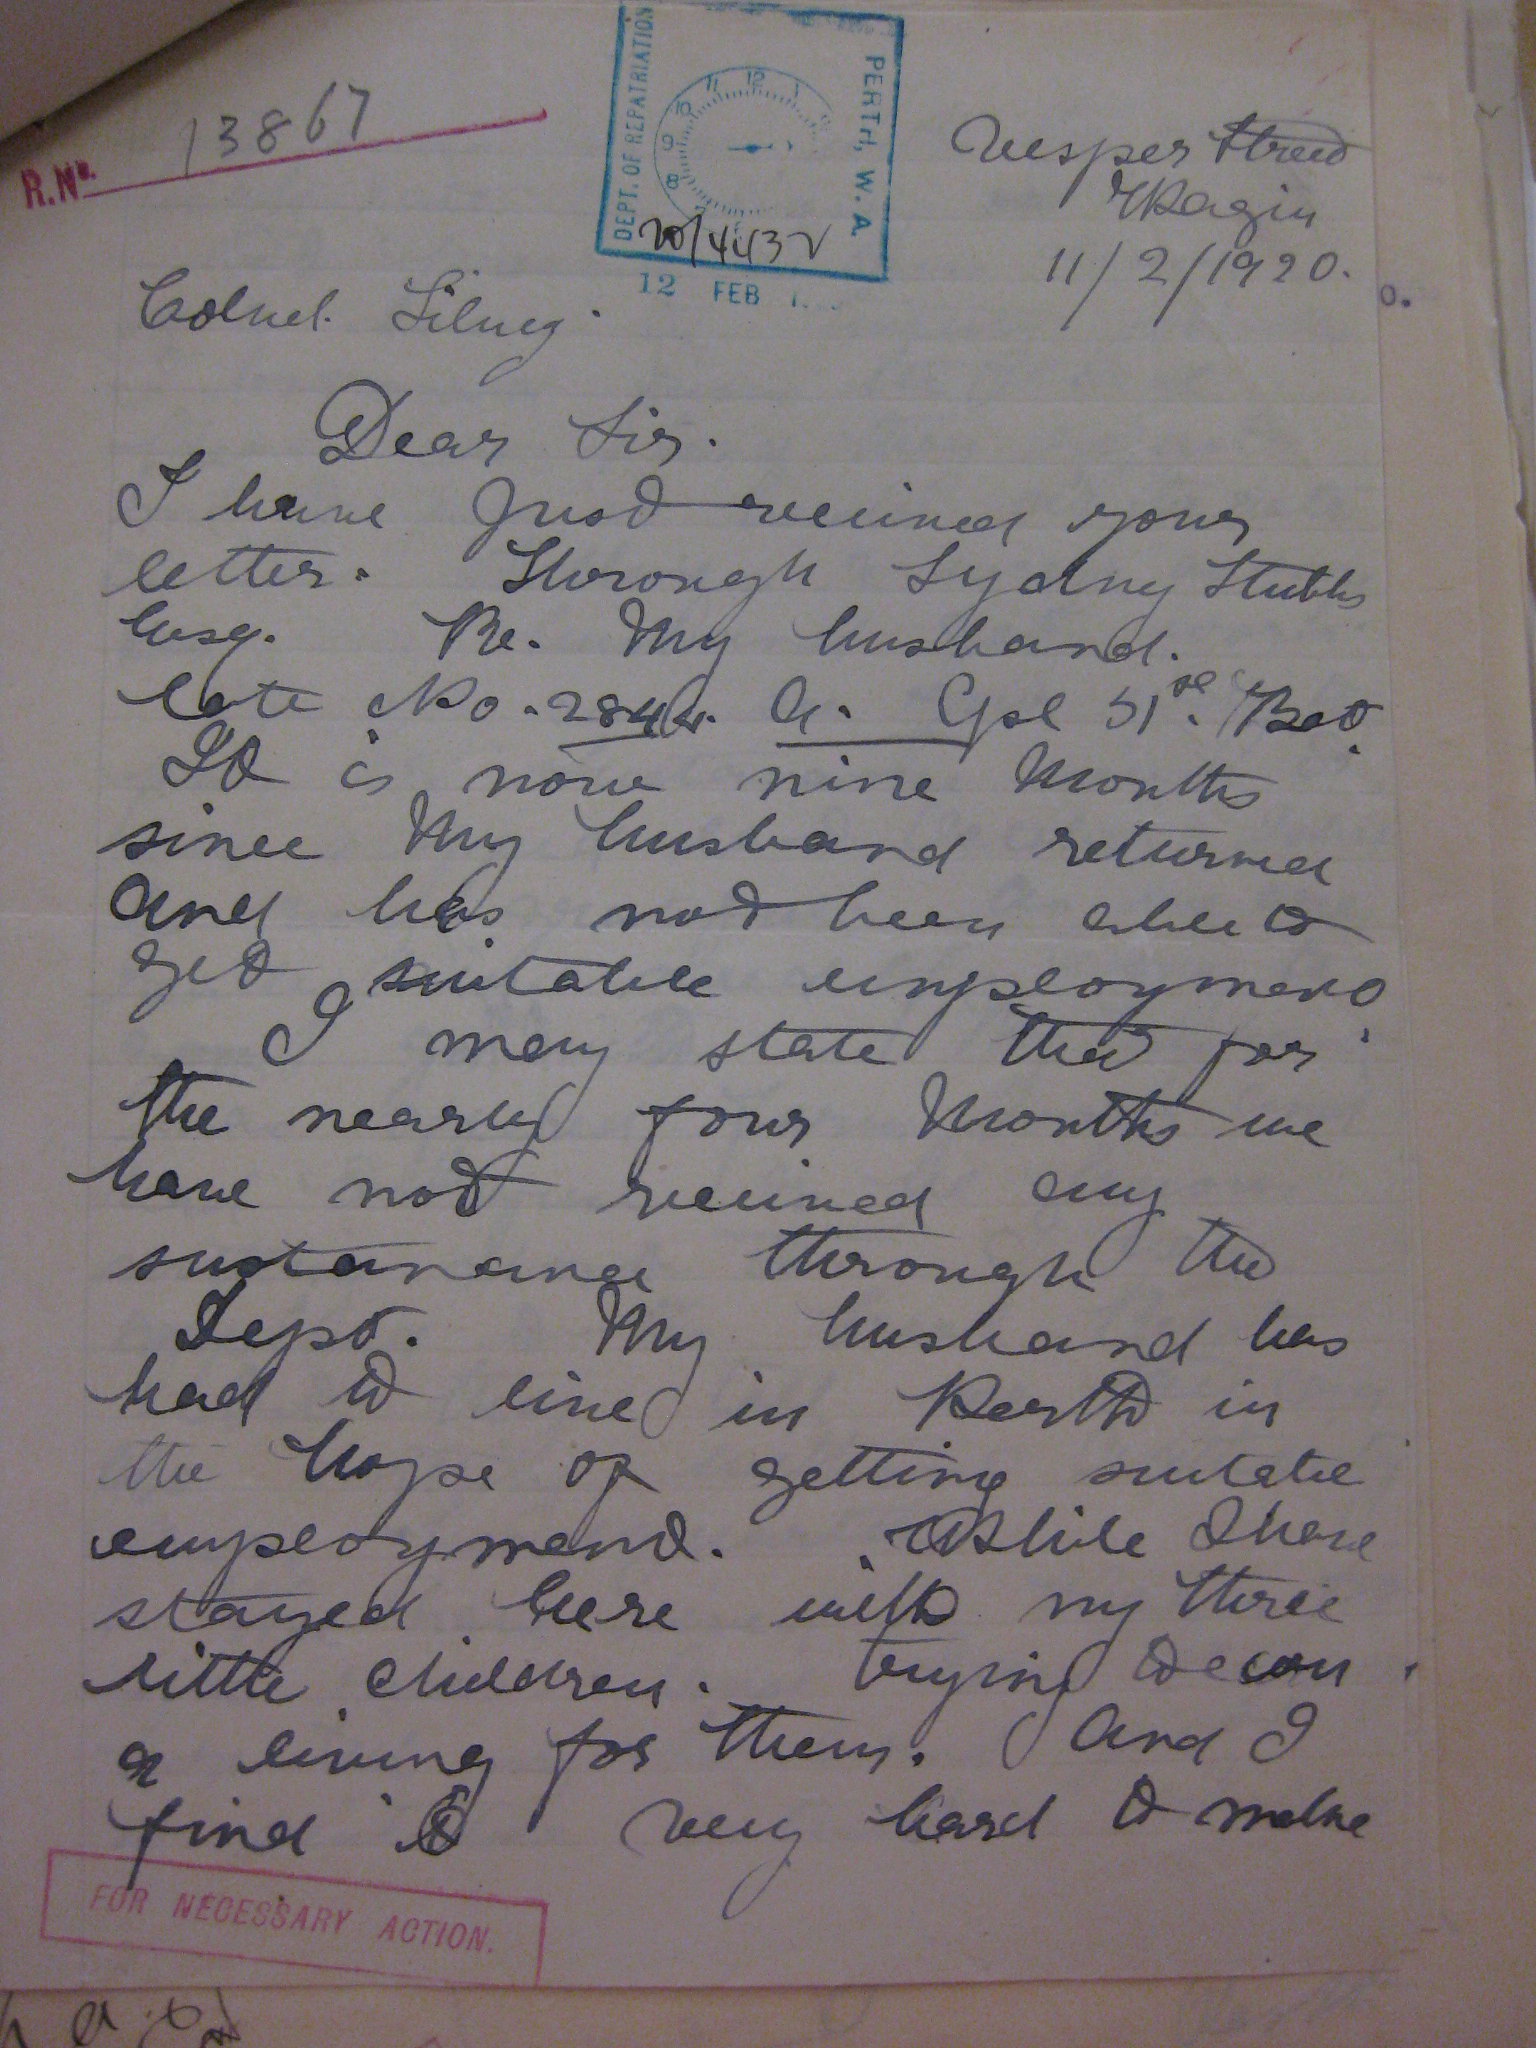 R.No. 13867
DEPT. OF REPATRIATION
PERTH, W. A.
12 11 10 9 8
20/4432
12 FEB
Vesper Street
Wagin
11/2/1920.
Colnel. Lilney.
Dear Sir.
I have Just received your
letter. Through Sydney Stubbs
Esq. Re. My husband.
late No. 2844. A. Cpl 51st. Bat.
It is now nine Months
since My husband returned
and has not been able to
get suitable employment.
I may state that for
the nearly four Months we
have not received any
sustanance through the
Dept. My husband has
had to live in Perth in
the hope of getting suitable
employment. While I have
stayed here with my three
little children. trying to earn
a living for them. And I
find it very hard to make
FOR NECESSARY ACTION.